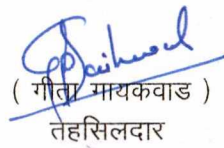 ( गीता गायकवाड )
तहसिलदार